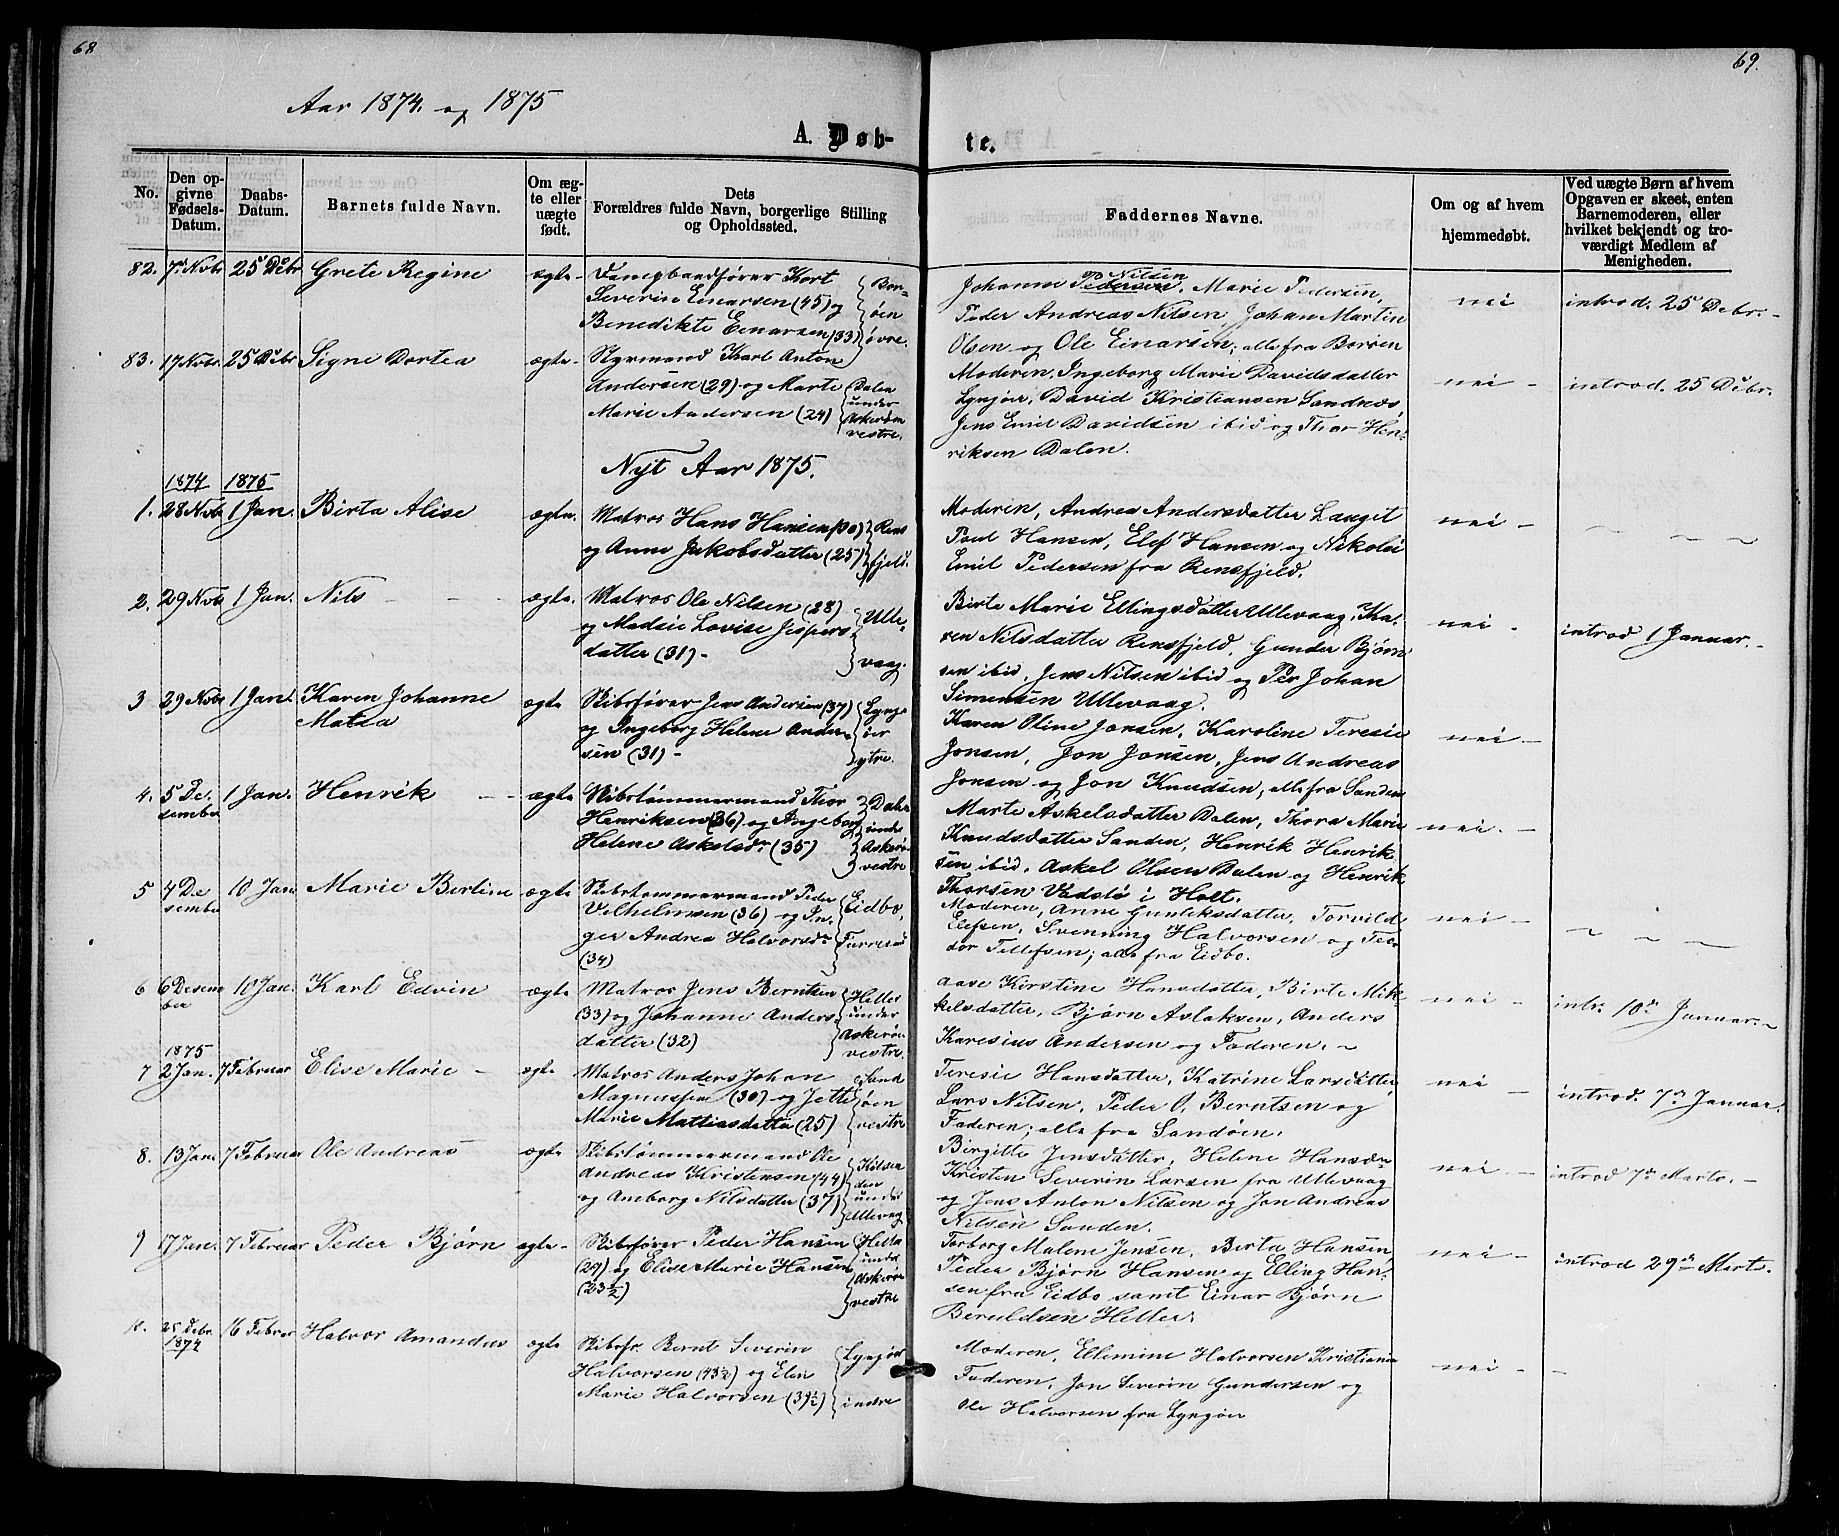 68
69.
Aar 1874. og 1875
A. Døb-
te.
No.
Den op-
givne
Fødsels-
Datum.
Daabs-
Datum.
Barnets fulde Navn.
Om æg-
te eller
uægte
født.
Dets
Forældres fulde Navn, borgerlige Stilling
og Opholdssted.
Faddernes Navne.
Om og af hvem
hjemmedøbt.
Ved uægte Børn af hvem
Opgaven er skeet, enten
Barnemoderen, eller
hvilket bekjendt og tro-
værdigt Medlem af
Menigheden.
82. 7de Novbr 25 Debr Grete Regine ægte-
Kort
Severin Einarsen (45) og
Benedikte Einarsen (33)
Bor-
øen
øvre.
Johanne Nilsen, Marie Pedersen,
Peder Andreas Nilsen, Johan Martin
Olsen og Ole Einarsen; alle fra Borøen
nei
introd. 25 Debr. -
83. 17 Novbr. 25 Debr Signe Dortea ægte-
Styrmand Karl Anton
Andersen (29) og Marte
Marie Andersen (24)
Dalen
under
Askerøen
vestre.
Moderen, Ingeborg Marie Davidsdatter
Lyngøer, David Kristiansen Sandnæs,
Jens Emil Davidsen ibid og Thor Hen-
riksen Dalen.
nei -
introd. 25 Debr.
Nyt Aar 1875.
1874 1875
1. 28 Novbr 1 Jan. Birta Alise ægte.
Matros Hans Hansen (30)
og Anne Jakobsdatter (25)
Rens
fjeld.
Moderen, Andrea Andersdatter Langet
Poul Hansen, Elef Hansen og Nikolai
Emil Pedersen fra Rensfjeld.
nei -
2. 29 Novbr 1 Jan. Nils - - ægte.
Matros Ole Nilsen (28)
og Madsie Lovise Jespers
datter (31) -
Ulle-
vaag.
Birte Marie Ellingsdatter Ullevaag, Ka-
ren Nilsdatter Rensfjeld, Gunder Bjørn
sen ibid, Jens Nilsen ibid og Per Johan
Simensen Ullevaag.
nei -
introd 1 Januar. -
3 29 Novbr 1 Jan. Karen Johanne
Matea ægte
Skibsfører Jens Andersen (37)
og Ingeborg Helene Ander-
sen (31) -
Lyng-
øer
ytre.
Karen Oline Jonsen, Karoline Teresie
Jonsen, Jon Jonsen, Jens Andreas
Jonsen og Jon Knudsen, alle fra Sanden
nei -
4. 5 De-
sember 1 Jan. Henrik - - ægte
Skibstømmermand Thor
Henriksen (36) og Ingeborg
Helene Askelsdr (35)
Dalen
under
Askerø
vestre
Marte Askelsdatter Dalen, Thora Marie
Knudsdatter Sanden, Henrik Henrik-
sen ibid, Askel Olsen Dalen og Henrik
Thorsen Vadslø i Holt.
nei. -
5 4 De
sember 10 Jan Marie Bertine ægte
Skibstømmermand Peder
Vilhelmsen (36) og In-
ger Andrea Halvorsdr
(34)
Eidbo,
Moderen, Anne Gunleksdatter, Torvild
Elefsen, Svenning Halvorsen og Teo-
dor Tellefsen; alle fra Eidbo.
nei -
6 6 Desem
ber 10 Jan. Karl Edvin ægte
Matros Jens Berntsen
(33) og Johanne Anders-
datter (32)
Helles
under
Askerøen
vestre.
Aase Kirstine Hansdatter, Birte Mik-
kelsdatter, Bjørn Aslaksen, Anders
Karesius Andersen og Faderen. -
nei -
intr. 10de Januar. -
1875
7 2 Jan. 7 Februar Elise Marie - ægte
Matros Anders Johan
Magnussen (30) og Jette
Marie Mattiasdatter (25)
Sand
øen
vestre
Teresie Hansdatter, Katrine Larsdatter
Lars Nilsen, Peder O. Berntsen og
Faderen; alle fra Sandøen.
nei -
introd. 7de Januar.
8. 13 Jan. 7 Februar Ole Andreas ægte
Skibstømmermand Ole
Andreas Kristensen (44)
og Amborg Nilsdatter (37)
Kilsen
den
under
Ullevaag
Birgitte Jensdatter, Helene Hansdr
Kristen Severin Larsen fra Ullevaag
og Jens Anton Nilsen og Jon Andreas
Nilsen Sanden.
nei -
introd 7de Marts. -
9 17 Jan. 7 Februar Peder Bjørn ægte-
Skibsfører Peder Hansen
(29) og Elise Marie Hansen
(23½)
Helle
under
Askerøen
vestre
Torborg Malene Jensen, Berta Hansen,
Peder Bjørn Hansen og Elling Han-
sen fra Eidbo samt Einar Bjørn
Beruldsen Helle.
nei -
introd 29de Marts.
10. 25 Debr.
1874 16 Februar Halvor Amandus ægte
Skibsfr. Bernt Severin
Halvorsen (43½) og Elen
Marie Halvorsen (39½)
Lyngøer
indre
Moderen, Ellemine Halvorsen Kristiania
Faderen, Jon Severin Gundersen og
Ole Halvorsen fra Lyngøer
nei - -